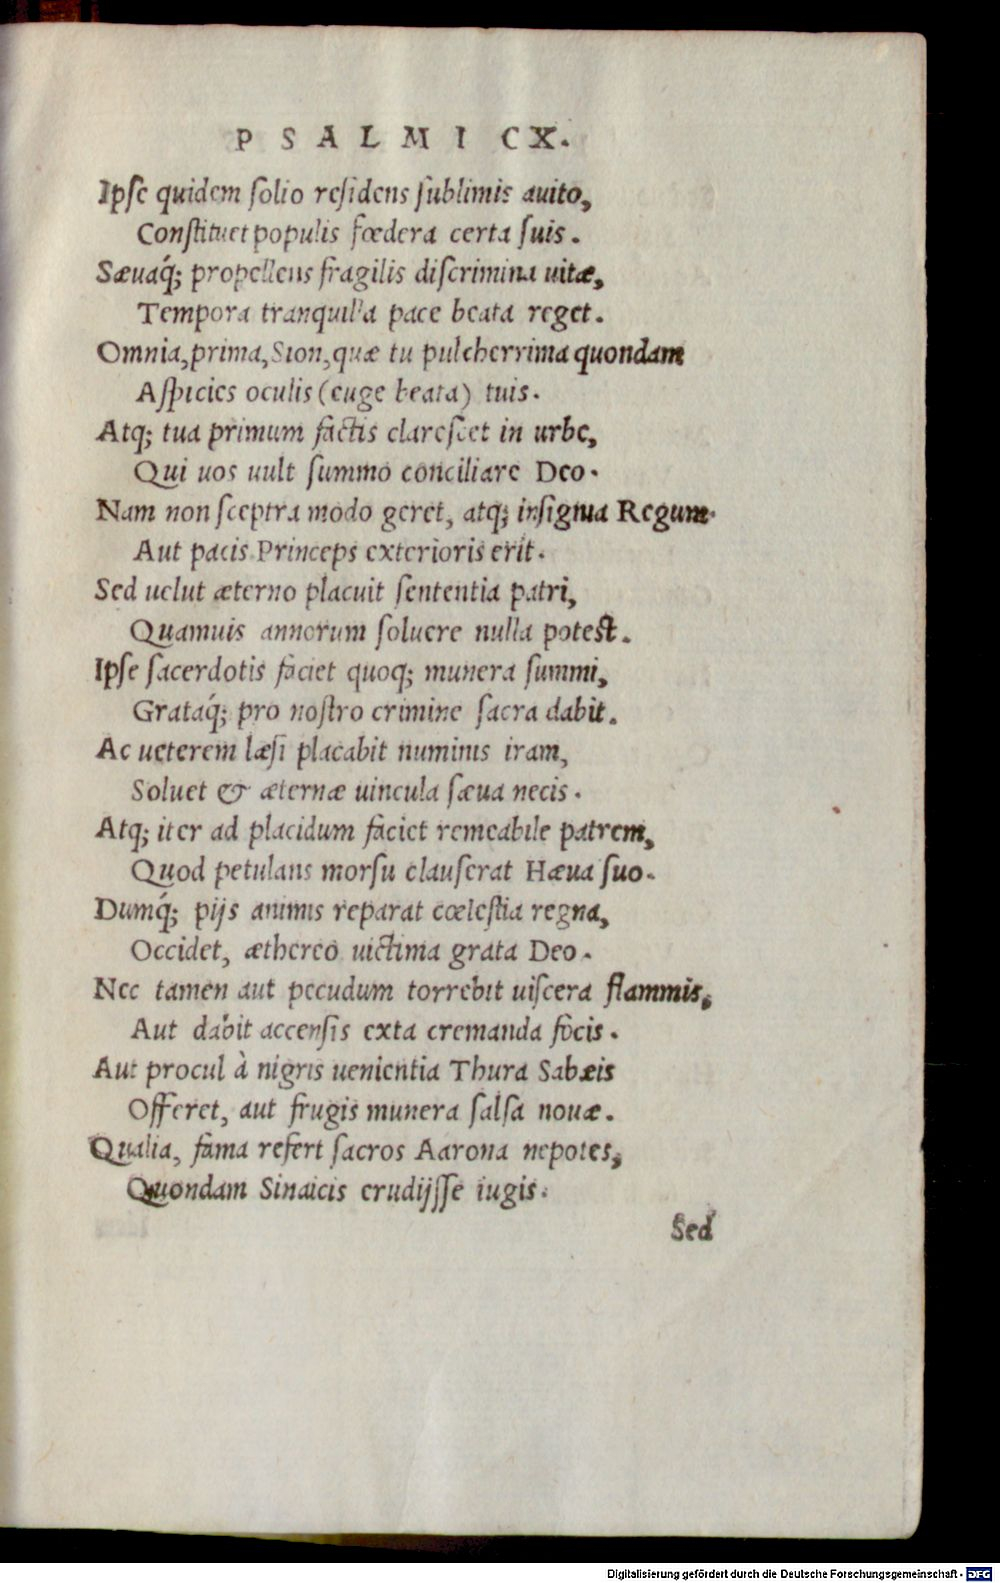 PSALMI CX.
Ipse quidem solio residens sublimis auito,
Constituet populis fœdera certa suis.
Sæuaq́; propellens fragilis discrimina uitæ,
Tempora tranquilla pace beata reget.
Omnia, prima, Sion, quæ tu pulcherrima quondam
Aspicies oculis (euge beata) tuis.
Atq; tua primum factis clarescet in urbe,
Qui uos uult summo conciliare Deo.
Nam non sceptra modo geret, atq; insignia Regum.
Aut pacis Princeps exterioris erit.
Sed uelut æterno placuit sententia patri,
Quamuis annorum soluere nulla potest.
Ipse sacerdotis faciet quoq; munera summi,
Grataq́; pro nostro crimine sacra dabit.
Ac ueterem læsi placabit numinis iram,
Soluet & æternæ uincula sæua necis.
Atq; iter ad placidum faciet remeabile patrem,
Quod petulans morsu clauserat Hæua suo.
Dumq́; pijs animis reparat cœlestia regna,
Occidet, æthereo uictima grata Deo.
Nec tamen aut pecudum torrebit uiscera flammis,
Aut dabit accensis exta cremanda focis.
Aut procul à nigris uenientia Thura Sabæis
Offeret, aut frugis munera salsa nouæ.
Qualia, fama refert sacros Aarona nepotes,
Quondam Sinaicis erudijsse iugis.
Sed
Digitalisierung gefördert durch die Deutsche Forschungsgemeinschaft - DFG